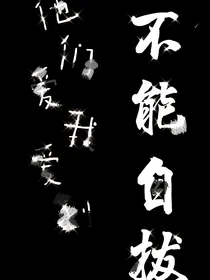 他们爱我爱到
不能自拔